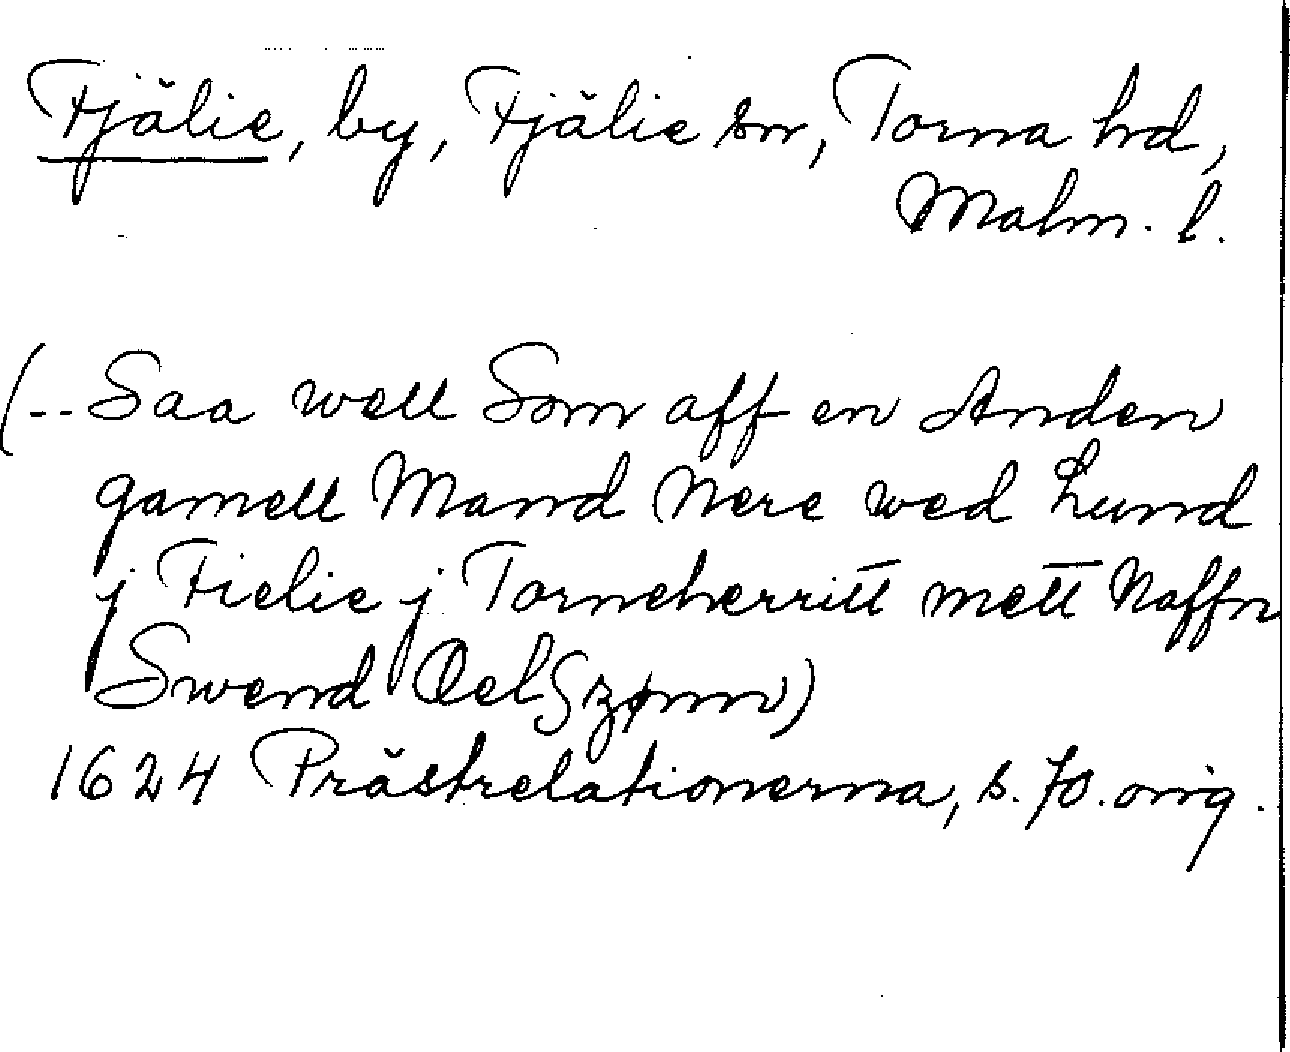 Fjälie, by, Fjälie sn, Torna hrd,
Malm. l.
(-- Saa well Som aff en Anden
gamell Mand Nere wed Lund
j Fielie j Torneherritt mett Naffn
Swend OelSzønn)
1624 Prästrelationerna, s. 70. orig.